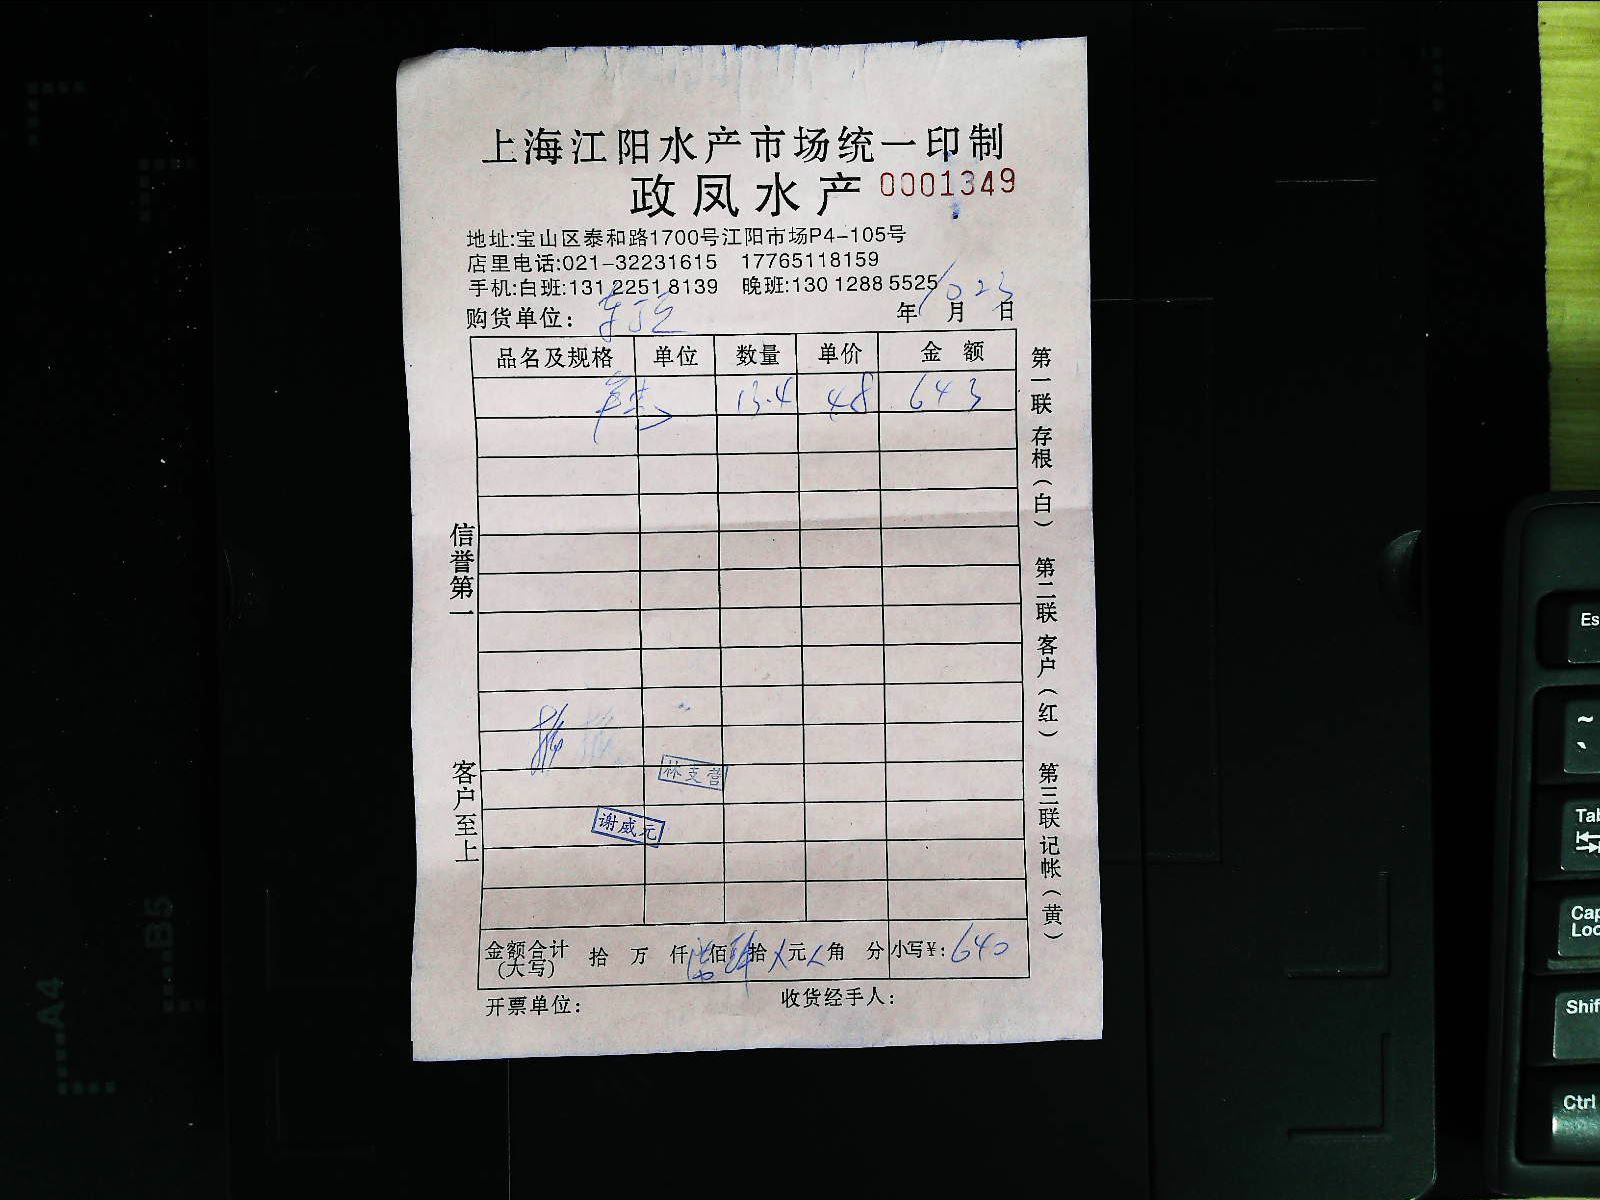 上海江阳水产市场统一印制
政凤水产 0001349
地址:宝山区泰和路1700号江阳市场P4-105号
店里电话:021-32231615 17765118159
手机:白班:131 2251 8139 晚班:130 1288 5525
购货单位: 年10月23日
品名及规格 单位 数量 单价 金额
13.4 48 643
信誉第一
客户至上
第一联 存根(白) 第二联 客户(红) 第三联 记帐(黄)
林支营
谢威元
金额合计(大写) 拾 万 仟 佰 拾 元 角 分 小写¥: 640
开票单位: 收货经手人:
A4
B5
Es
~
`
Tab
Cap
Loc
Shif
Ctrl